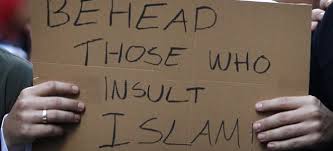 BEHEAD
THOSE WHO
INSULT
ISLAM